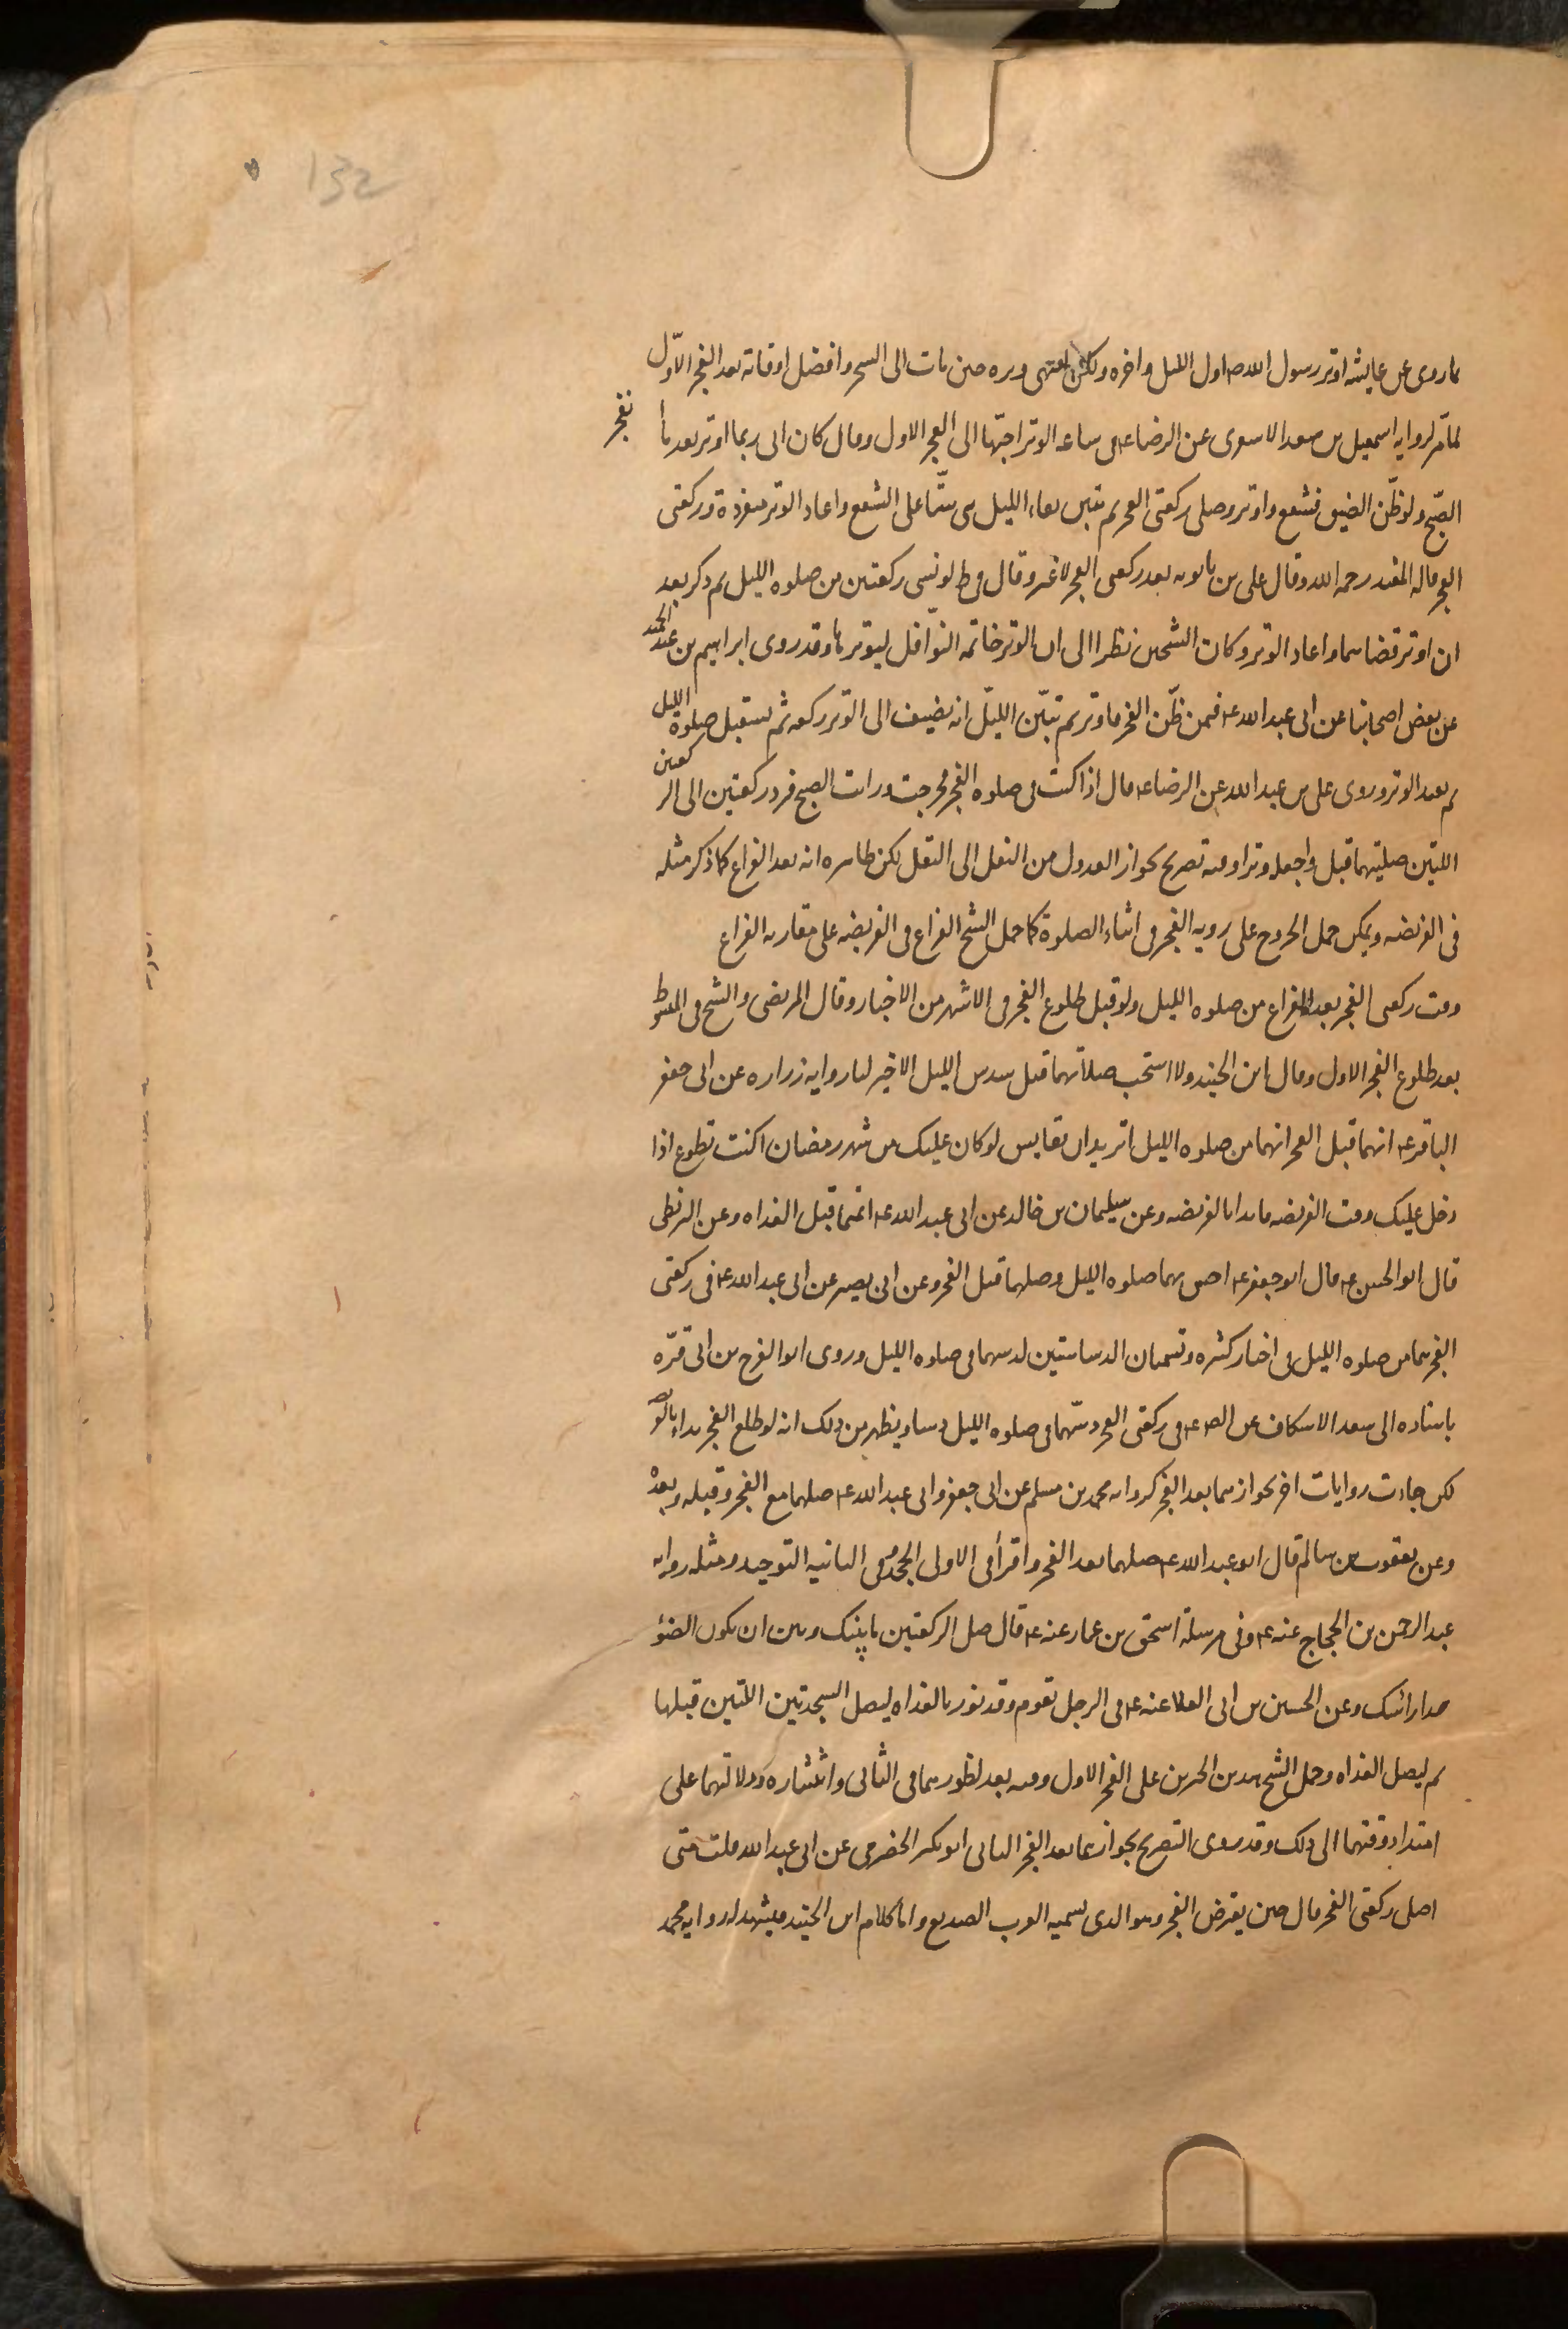 132
لما روى عن عايشه اوتر رسول الله ص اول الليل واخره ولكن انتهى وتره حين مات الى السحر وافضل اوقاته بعد الفجر الاوّل
لما مّر لروايه اسمعيل بن سعد الاسعرى عن الرضا ع فى ساعه الوتر احبّها الى الفجر الاول وقال كان ابى ربما اوتر بعد ما انفجر
الصّبح ولو ظّن الضيق فشفع واوتر وصلى ركعتى الفجر ثم تبين بقاء الليل بنى ستّا على الشفع واعاد الوتر منفردة وركعتى
الفجر قاله المفيد رحمه الله وقال على بن بابويه يعيد ركعتى الفجر لا غير وقال فى ط لو نسى ركعتين من صلوه الليل ثم ذكر بعد
ان اوتر قضاهما واعاد الوتر وكان الشيخين نظرا الى ان الوتر خاتمه النوّافل ليوتر بها وقد روى ابراهيم بن عبد الحميد
عن بعض اصحابنا عن ابى عبد الله ع فيمن ظّن الفجر فاوتر ثم تبيّن الليّل انه يضيف الى الوتر ركعه ثم يستقبل صلوة الليل
ثم يعيد الوتر وروى على بن عبد الله عن الرضا ع قال اذا كنت فى صلوه الفجر فخرجت ورايت الصبح فزد ركعتين الى الركعتين
اللتين صليتهما قبل واجعله وترا وفيه تصريح بجواز العدول من النفل الى النفل لكن ظاهره انه بعد الفراغ كما ذكر مثله
فى الفريضه ويمكن حمل الخروج على رويه الفجر فى اثناء الصلوة كما حمل الشيخ الفراغ فى الفريضه على مقاربه الفراغ
ووقت ركعتى الفجر بعد الفراغ من صلوه الليل ولو قبل طلوع الفجر فى الاشهر من الاخبار وقال المرتضى والشيخ فى المبسوط
بعد طلوع الفجر الاول وقال ابن الجنيد ولا استحب صلاتهما قبل سدس الليل الاخير لنا روايه زراره عن ابى جعفر
الباقر ع انهما قبل الفجر انهما من صلوه الليل اتريد ان تقايس لو كان عليك من شهر رمضان اكنت تطوع اذا
دخل عليك وقت الفريضه فابدا بالفريضه وعن سليمان بن خالد عن ابى عبد الله ع انهما قبل الغداه وعن البزنطى
قال ابو الحسن ع قال ابو جعفر ع احش بهما صلوه الليل وصلهما قبل الفجر وعن ابى بصير عن ابى عبد الله ع فى ركعتى
الفجر هما من صلوه الليل فى اخبار كثيره وتسميان الدساستين لدسهما فى صلوه الليل وروى ابو الفرج بن ابى قرّه
باسناده الى سعد الاسكاف عن الص ع فى ركعتى الفجر دسّهما فى صلوه الليل دسا ويظهر من ذلك انه لو طلع الفجر بدا بالفر
لكن جاءت روايات اخر بجوازهما بعد الفجر كروايه محمد بن مسلم عن ابى جعفر وابى عبد الله ع صلهما مع الفجر وقبله وبعده
وعن يعقوب بن سالم قال ابو عبد الله ع صلهما بعد الفجر واقرأ فى الاولى الجحد وفى الثانيه التوحيد ومثله روايه
عبد الرحمن بن الحجاج عنه ع وفى مرسلة اسحق بن عمار عنه ع قال صل الركعتين ما بينك وبين ان يكون الضؤ
حذا رائسك وعن الحسين بن ابى العلا عنه ع فى الرجل يقوم وقد نور بالغداه ليصل السجدتين اللتين قبلها
ثم ليصل الغداه وحمل الشيخ هذين الخبرين على الفجر الاول وفيه بعد لظهورهما فى الثانى وانتشاره ودلالتهما على
امتداد وقتهما الى ذلك وقد روى التصريح بجوازهما بعد الفجر الثانى ابو بكر الحضرمى عن ابى عبد الله قلت متى
اصلى ركعتى الفجر قال حين يعترض الفجر وهو الذى تسميه العرب الصديع واما كلام ابن الجنيد فيشهد له روايه محمد